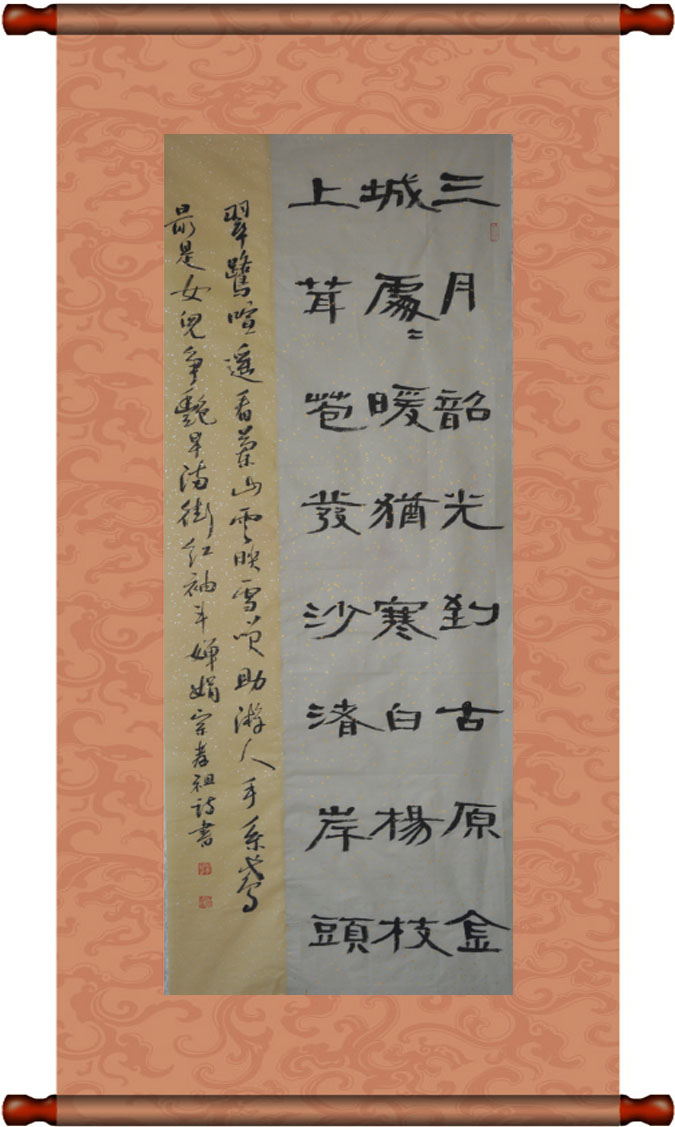 三月韶光到古原金
城處〻暖猶寒白楊枝
上茸苞發沙渚岸頭
翠鷺喧遥看蘭山雲映雪笑助游人手系鳶
最是女兒爭艷早滿街紅袖斗嬋娟宗孝祖詩書